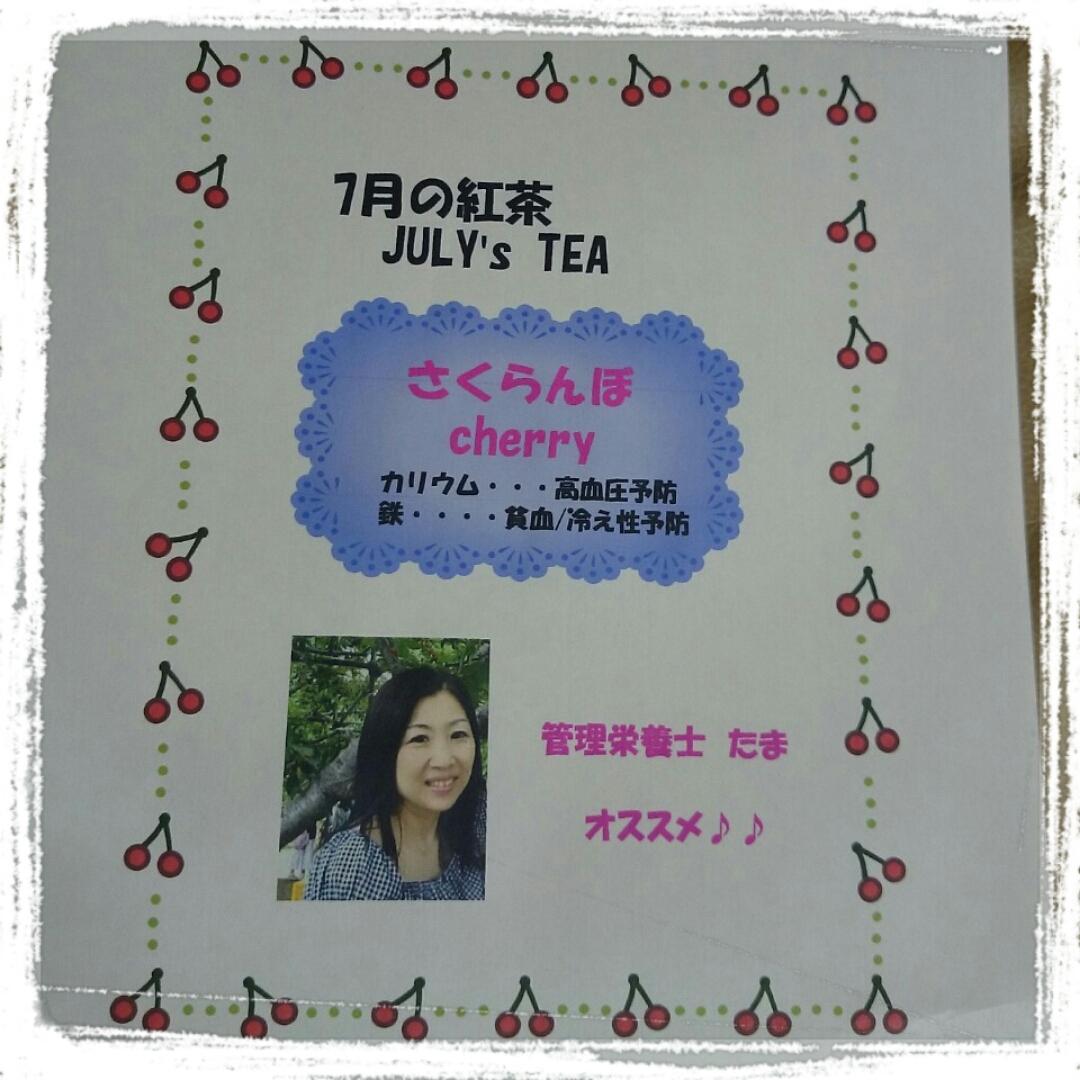 7月の紅茶
JULY's TEA
さくらんぼ
cherry
カリウム・・・高血圧予防
鉄・・・・貧血/冷え性予防
管理栄養士 たま
オススメ♪♪